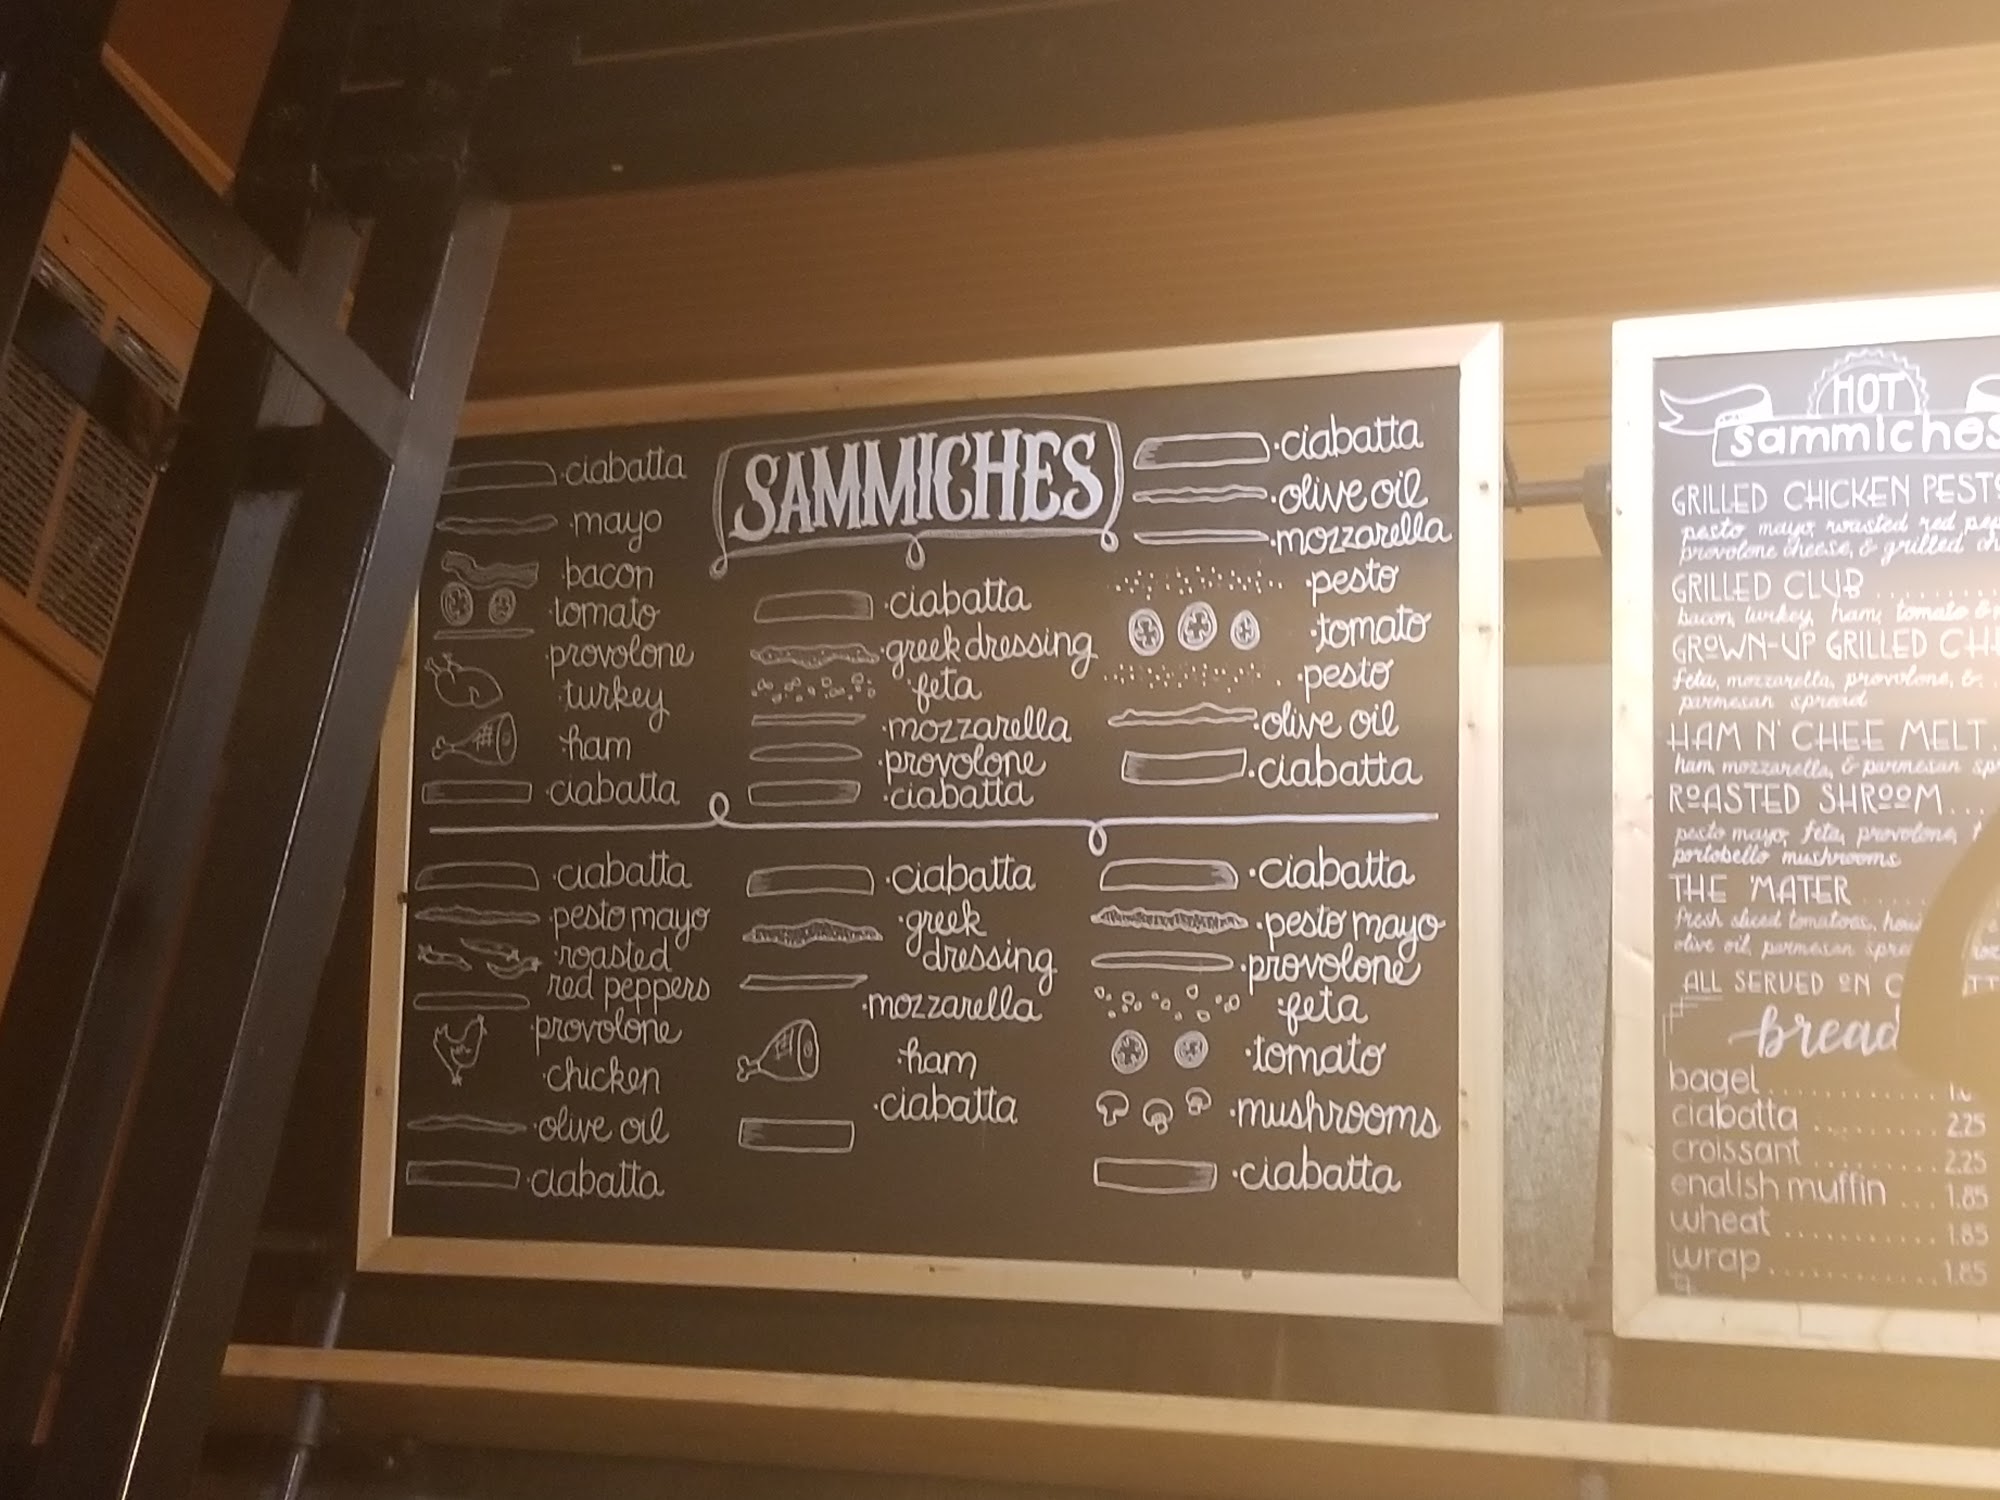 SAMMICHES
ciabatta
mayo
bacon
tomato
provolone
turkey
ham
ciabatta
ciabatta
greek dressing
feta
mozzarella
provolone
ciabatta
ciabatta
olive oil
mozzarella
pesto
tomato
pesto
olive oil
ciabatta
ciabatta
pesto mayo
roasted
red peppers
provolone
chicken
olive oil
ciabatta
ciabatta
greek
dressing
mozzarella
ham
ciabatta
ciabatta
pesto mayo
provolone
feta
tomato
mushrooms
ciabatta
HOT
sammiches
GRILLED CHICKEN
pesto mayo, roasted red
provolone cheese, & grilled
GRILLED CLUB
bacon, turkey, ham, tomato &
GROWN-UP GRILLED
feta, mozzarella, provolone, &
parmesan spread
HAM N' CHEE MELT
ham, mozzarella, & parmesan
ROASTED SHROOM
pesto mayo, feta, provolone,
portobello mushrooms
THE 'MATER
fresh sliced tomatoes,
olive oil, parmesan
ALL SERVED ON
bread
bagel
ciabatta 2.25
croissant 2.25
enalish muffin 1.85
wheat 1.85
wrap 1.85